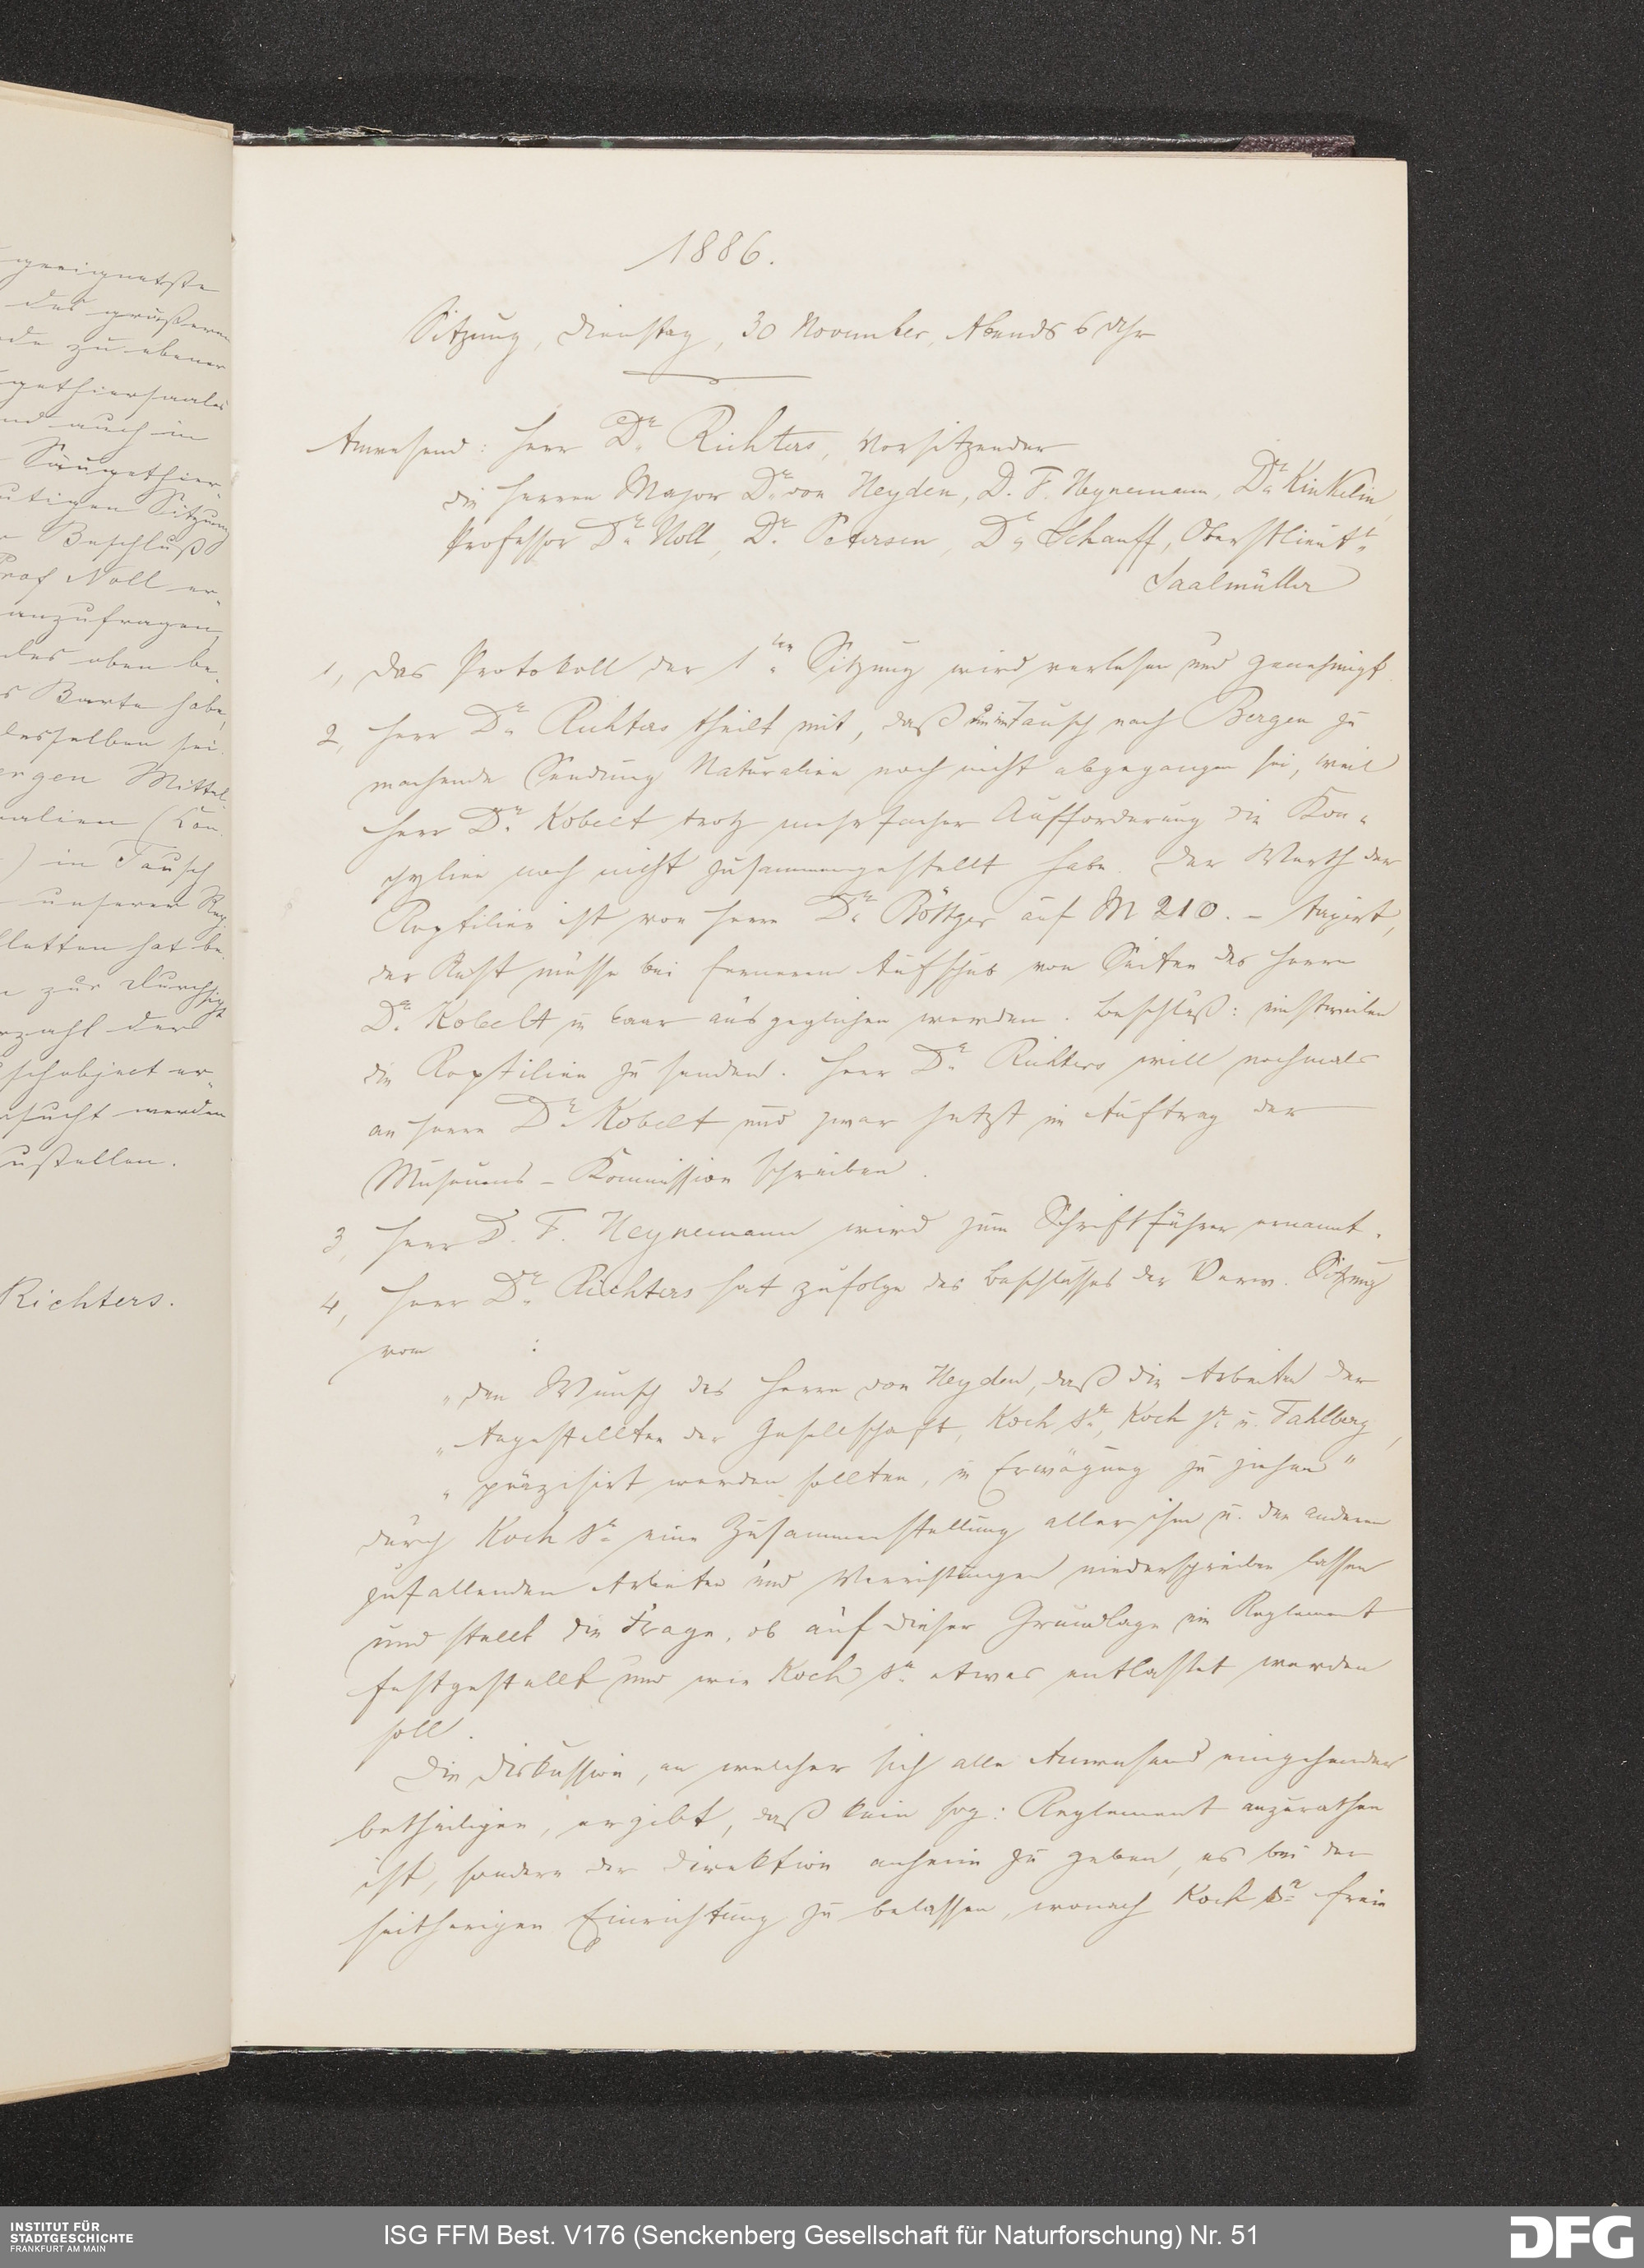 geeignetste
des grösseren
de zu ebener
gethiersaales
nd auch in
Säugethier-
utigen Sitzung
Beschluß
Prof Noll er-
anzufragen,
des oben be-
s Barte habe,
desselben sei.
ergen Mittel-
ralien (Con-
) in Tausch
unserer Rep-
letten hat be-
zur Durchsicht
rzahl der
schobject er-
rsucht werden
ustellen.
Richters.
1886.
Sitzung, Dienstag, 30 November, Abends 6 Uhr
Anwesend: Herr Dr. Richters, Vorsitzender
die Herren Major Dr. von Heyden, D. F. Heynemann, Dr. Kinkelin,
Professor Dr. Noll, Dr. Petersen, Dr. Schauff, Oberstlieutt.
Saalmüller
1, Das Protokoll der 1ten Sitzung wird verlesen und genehmigt.
2, Herr Dr. Richters theilt mit, daß die im Tausch nach Bergen zu
machende Sendung Naturalien noch nicht abgegangen sei, weil
Herr Dr. Kobelt trotz mehrfacher Aufforderung die Kon-
chylien noch nicht zusammengestellt habe. Der Werth der
Reptilien ist von Herrn Dr. Böttger auf M 210.- taxirt,
der Rest müsse bei fernerem Aufschub von Seiten des Herrn
Dr. Kobelt in baar ausgeglichen werden. Beschluß: einstweilen
die Reptilien zu senden. Herr Dr. Richters will nochmals
an Herrn Dr. Kobelt und zwar jetzt im Auftrag der
Museums-Kommission schreiben.
3, Herr D. F. Heynemann wird zum Schriftführer ernannt.
4, Herr Dr. Richters hat zufolge des Beschlusses der Verw. Sitzung
vom :
„den Wunsch des Herrn von Heyden, daß die Arbeiten der
„Angestellten der Gesellschaft, Koch sr., Koch jr. u. Fahlberg,
„präzisirt werden sollten, in Erwägung zu ziehen"
durch Koch sr. eine Zusammenstellung aller ihm u. den anderen
zufallenden Arbeiten und Verrichtungen niederschreiben lassen
und stellt die Frage, ob auf dieser Grundlage ein Reglement
festgestellt und wie Koch sr. etwas entlastet werden
soll.
Die Diskussion, an welcher sich alle Anwesend eingehender
betheiligen, ergibt, daß kein sog: Reglement anzurathen
ist, sondern der Direktion anheim zu geben, es bei der
seitherigen Einrichtung zu belassen, wonach Koch sr. freie
INSTITUT FÜR
STADTGESCHICHTE
FRANKFURT AM MAIN
ISG FFM Best. V176 (Senckenberg Gesellschaft für Naturforschung) Nr. 51
DFG